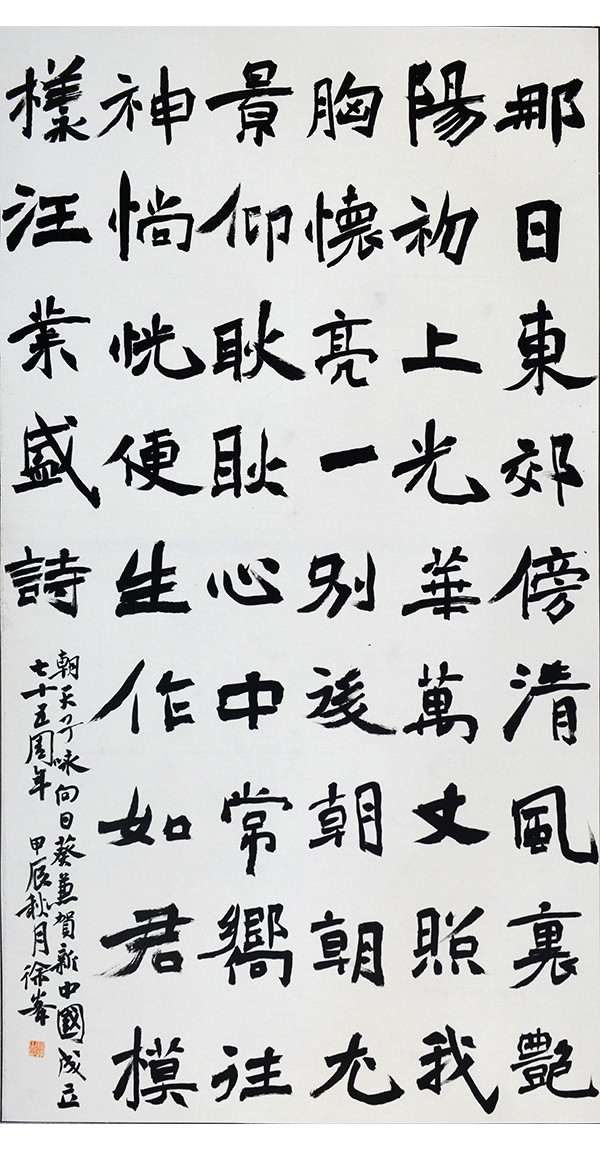 那日東郊傍清風裏艷
陽初上光華萬丈照我
胸懷亮一別後朝朝尤
景仰耿耿心中常嚮往
神惝恍便生作如君模
樣汪業盛詩
朝天子咏向日葵兼賀新中國成立
七十五周年 甲辰秋月徐峯